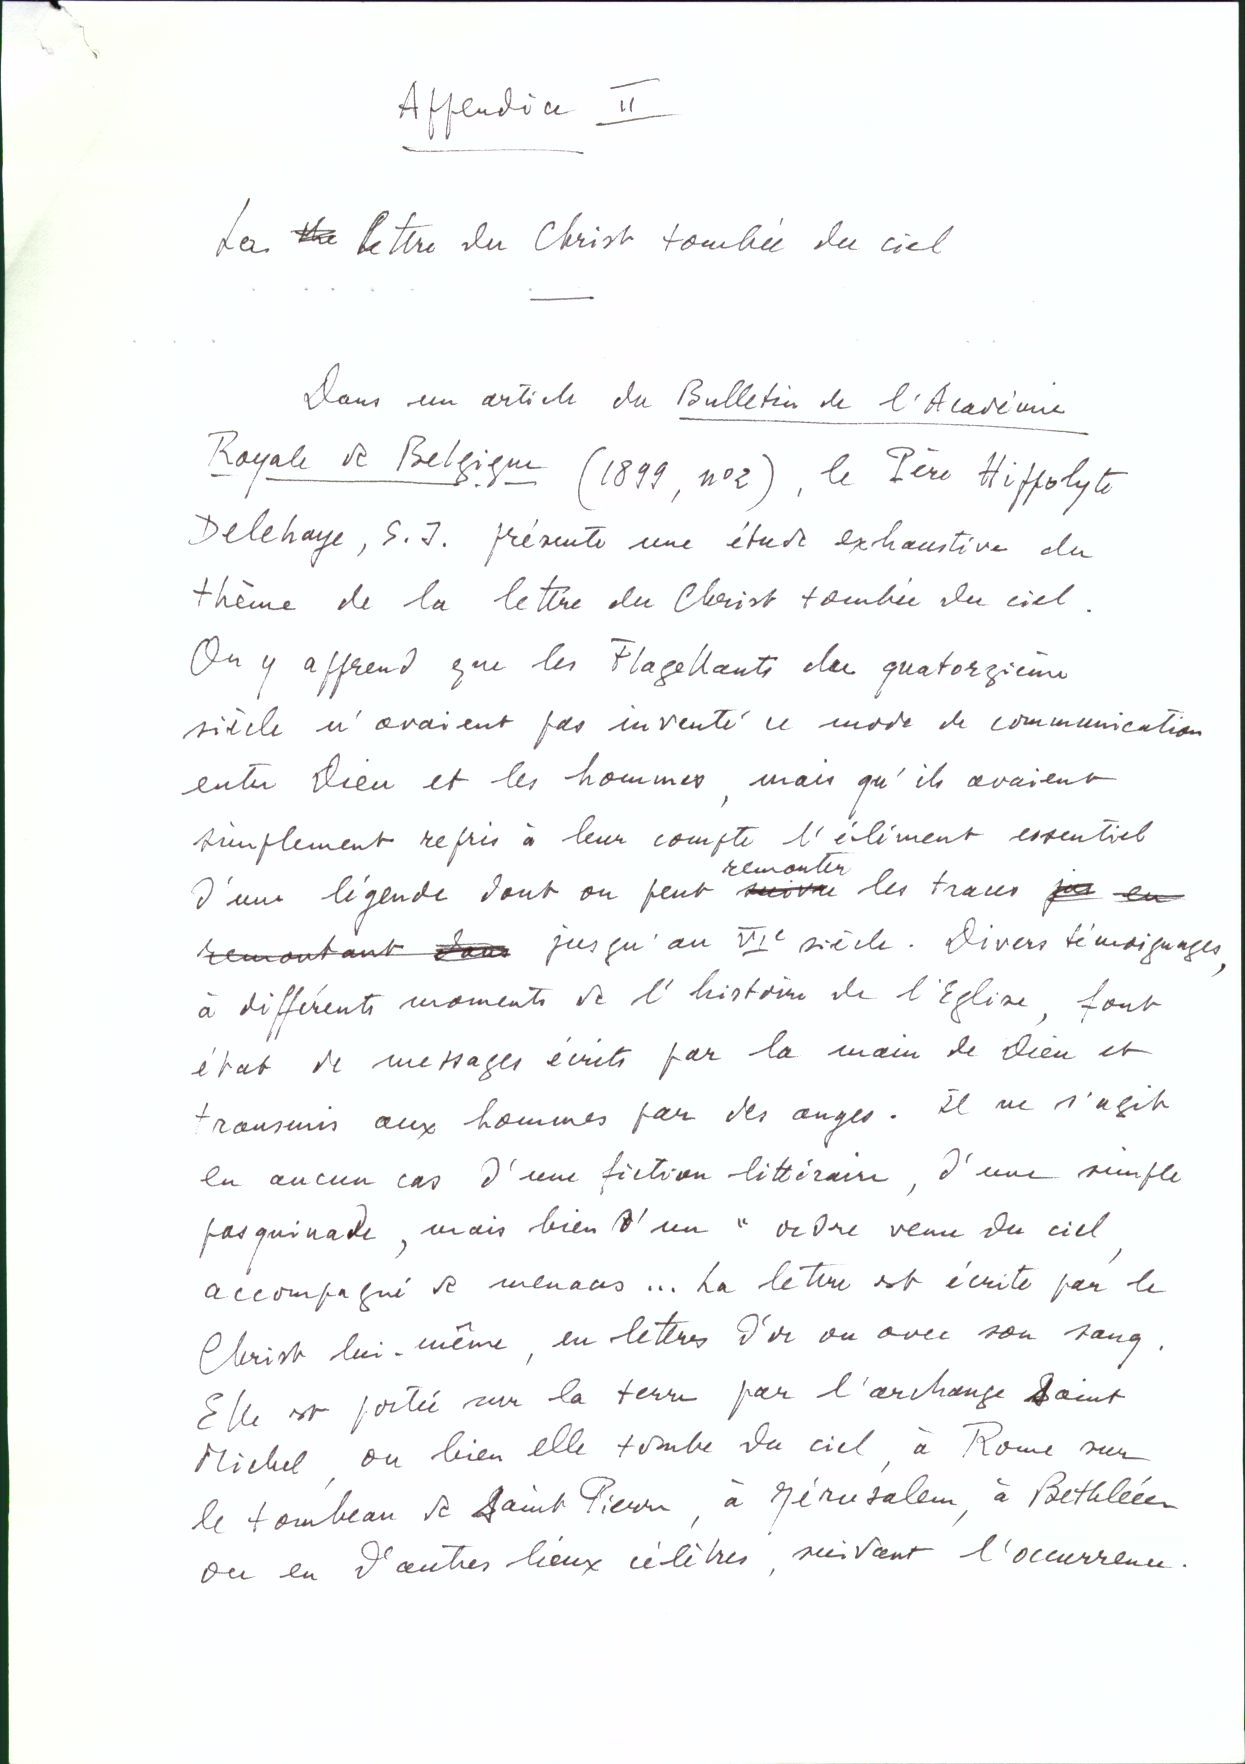 Appendice II
La lettre du Christ tombée du ciel
Dans un article du Bulletin de l'Académie
Royale de Belgique (1899, n°2), le Père Hippolyte
Delehaye, S.J. présente une étude exhaustive du
thème de la lettre du Christ tombée du ciel.
On y apprend que les Flagellants du quatorzième
siècle n'avaient pas inventé ce mode de communication
entre Dieu et les hommes, mais qu'ils avaient
simplement repris à leur compte l'élément essentiel
d'une légende dont on peut suivre remonter les traces jus en
remontant dans jusqu'au VIe siècle. Divers témoignages,
à différents moments de l'histoire de l'Eglise, font
état de messages écrits par la main de Dieu et
transmis aux hommes par des anges. Il ne s'agit
en aucun cas d'une fiction littéraire, d'une simple
pasquinade, mais bien d'un "ordre venu du ciel,
accompagné de menaces... La lettre est écrite par le
Christ lui-même, en lettres d'or ou avec son sang.
Elle est portée sur la terre par l'archange Saint
Michel, ou bien elle tombe du ciel, à Rome sur
le tombeau de Saint Pierre, à Jérusalem, à Bethléem
ou en d'autres lieux célèbres, suivant l'occurrence.